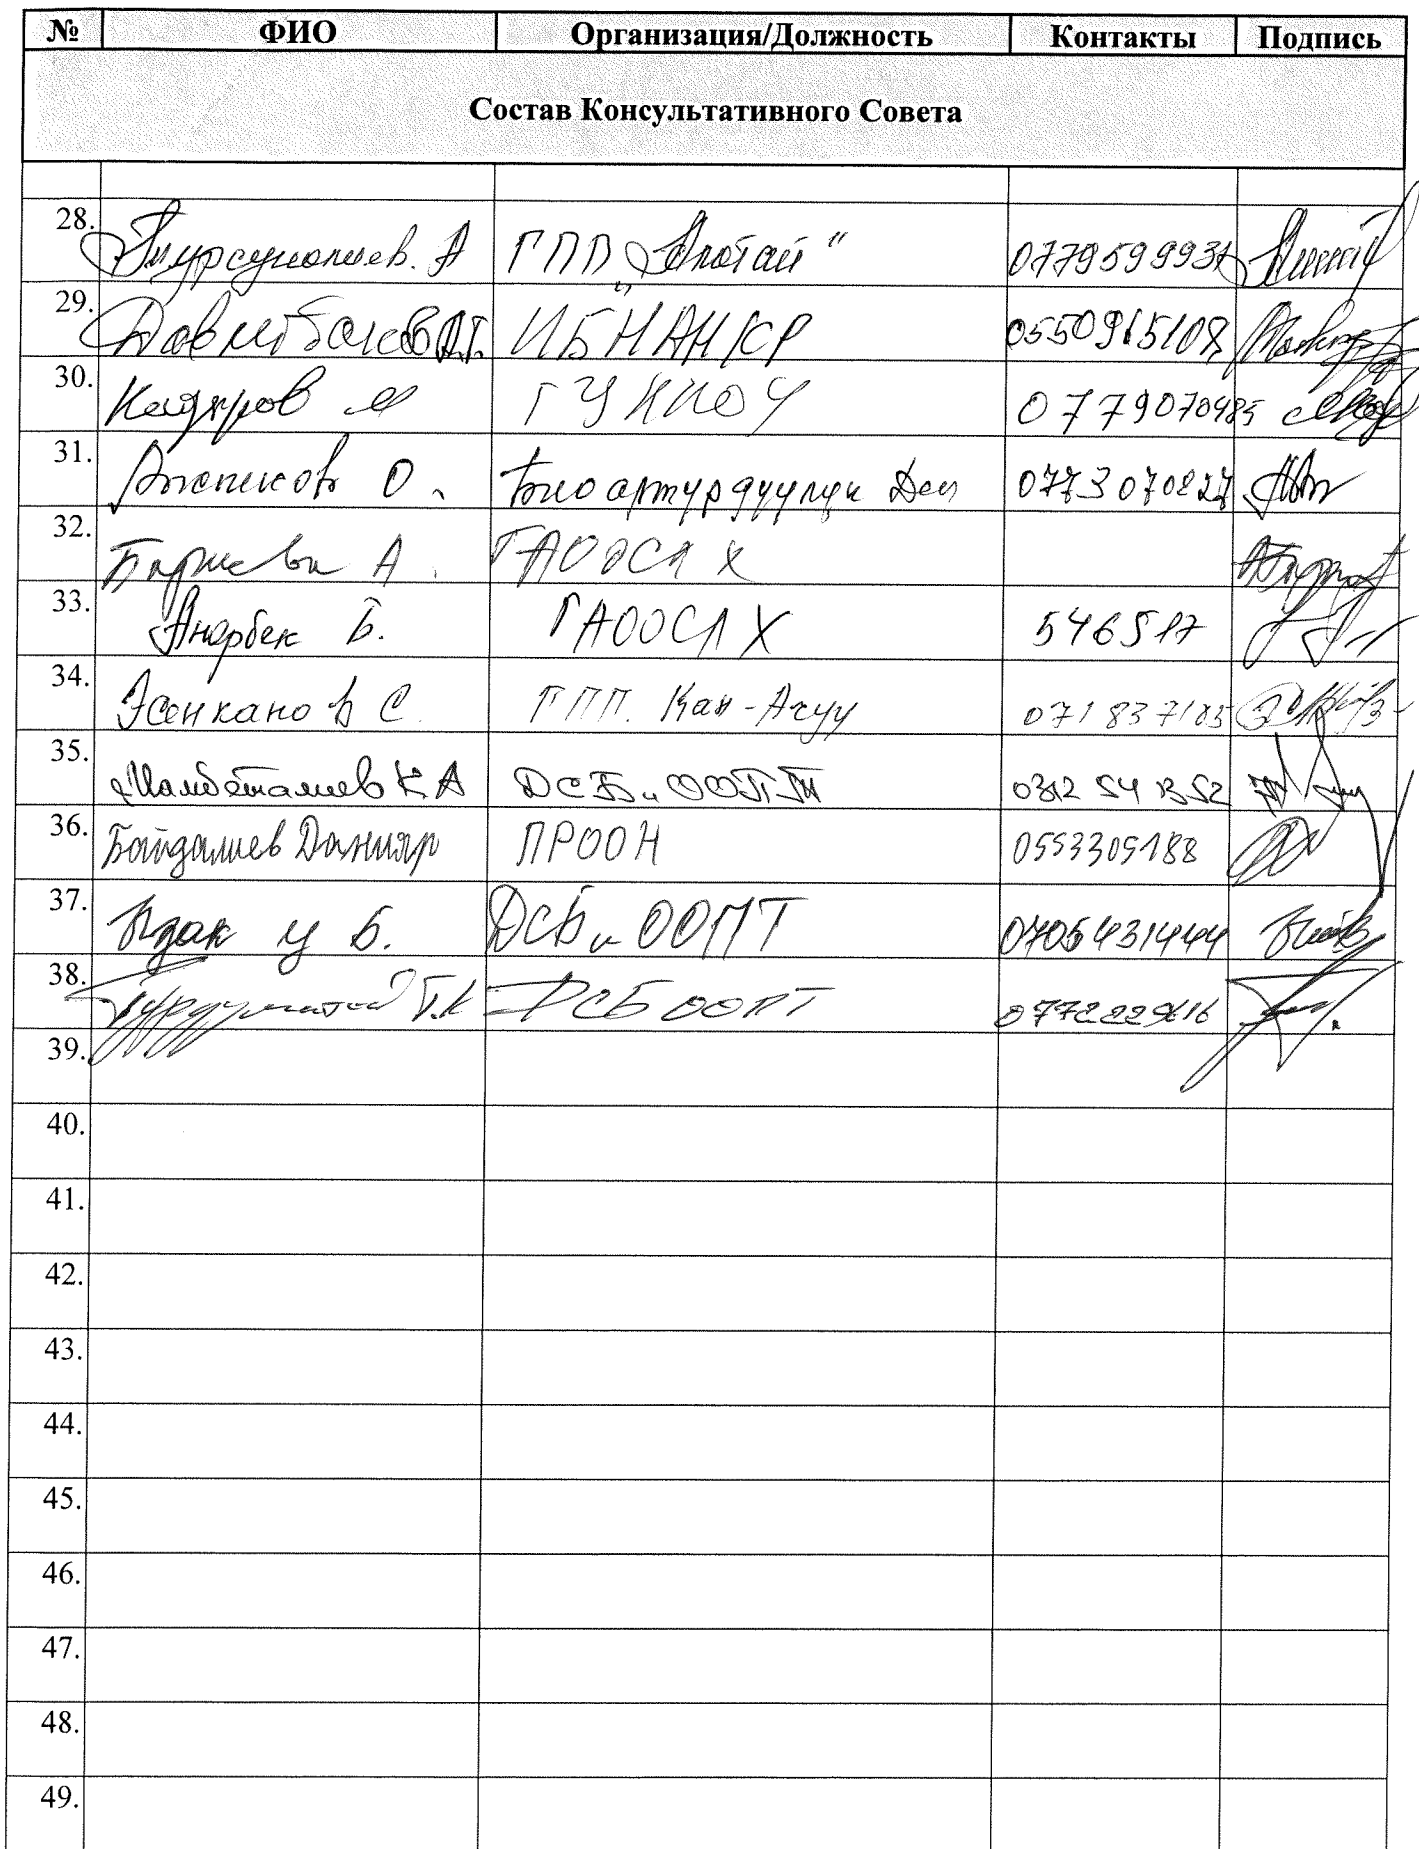 № ФИО Организация/Должность Контакты Подпись
Состав Консультативного Совета
28. А ГПП „Алатай“ 0779599931
29. Давлетбаков А.Т. ИБ НАН КР 0550965108
30. Кадыров М ГУ 0779070485
31. О. Био артурдуулук Деп 0773070827
32. А. ГАООСЛХ
33. Анарбек Б. ГАООСЛХ 546517
34. Эсенканов С. ГПП. Кан-Ачуу 0718371
35. Мамбеталиев К А ДСБиООПТ 0312 54 13 52
36. Байдалиев Данияр ПРООН 0553305188
37. Удак у Б. ДСБиООПТ
38. Турдуматов Т.К ДСБ ООПТ 0772229616
39.
40.
41.
42.
43.
44.
45.
46.
47.
48.
49.